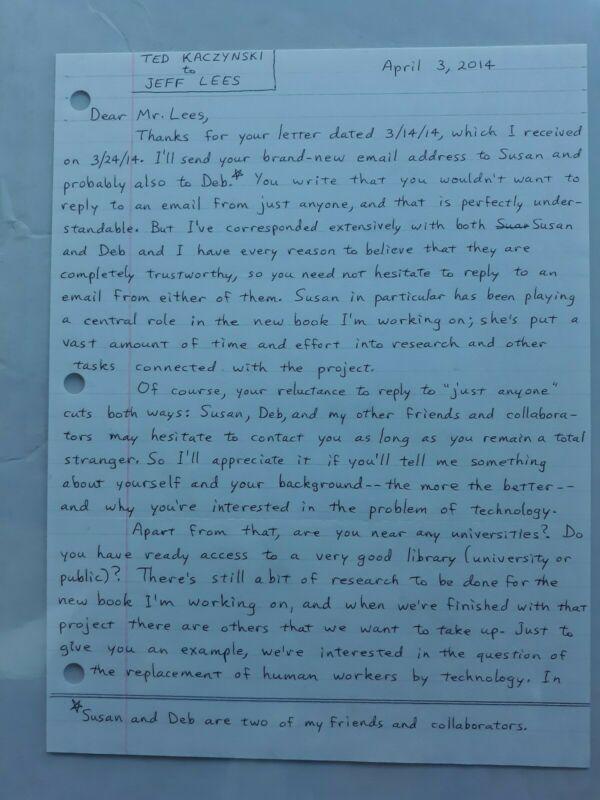 TED KACZYNSKI
to
JEFF LEES
April 3, 2014
Dear Mr. Lees,
Thanks for your letter dated 3/14/14, which I received
on 3/24/14. I'll send your brand-new email address to Susan and
probably also to Deb.* You write that you wouldn't want to
reply to an email from just anyone, and that is perfectly under-
standable. But I've corresponded extensively with both Susan
and Deb and I have every reason to believe that they are
completely trustworthy, so you need not hesitate to reply to an
email from either of them. Susan in particular has been playing
a central role in the new book I'm working on; she's put a
vast amount of time and effort into research and other
tasks connected with the project.
Of course, your reluctance to reply to "just anyone"
cuts both ways: Susan, Deb, and my other friends and collabora-
tors may hesitate to contact you as long as you remain a total
stranger. So I'll appreciate it if you'll tell me something
about yourself and your background--the more the better--
and why you're interested in the problem of technology.
Apart from that, are you near any universities? Do
you have ready access to a very good library (university or
public)? There's still a bit of research to be done for the
new book I'm working on, and when we've finished with that
project there are others that we want to take up. Just to
give you an example, we're interested in the question of
the replacement of human workers by technology. In
*Susan and Deb are two of my friends and collaborators.